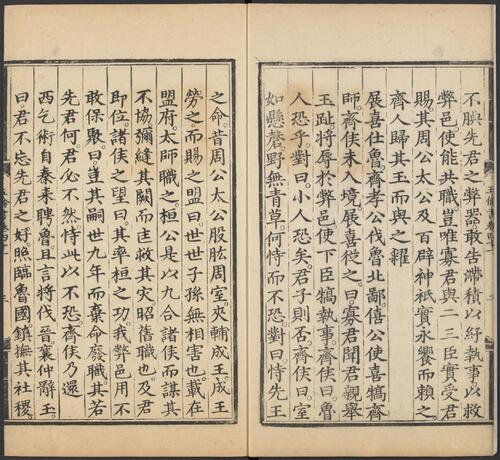 不腆先君之弊器。敢告滯積。以紓執事。以救
弊邑。使能共職。豈唯寡君與二三臣實受君
賜。其周公太公及百辟神祇。實永饗而賴之。
齊人歸其玉。而與之糴
展喜仕魯。齊孝公伐魯北鄙。僖公使喜犒齊
師。齊侯未入境。展喜從之。曰。寡君聞君親舉
玉趾。將辱於弊邑。使下臣犒執事。齊侯曰。魯
人恐乎。對曰。小人恐矣。君子則否。齊侯曰。室
如懸磬。野無青草。何恃而不恐。對曰。恃先王
之命。昔周公太公股肱周室。夾輔成王。成王
勞之。而賜之盟。曰。世世子孫。無相害也。載在
盟府。太師職之。桓公是以九合諸侯。而謀其
不協。彌縫其闕。而匡救其灾。昭舊職也。及君
即位。諸侯之望曰。其率桓之功。我弊邑用不
敢保聚。曰。豈其嗣世九年。而棄命廢職。其若
先君何。君必不然。恃此以不恐。齊侯乃還
西乞術自秦來聘魯。且言將伐晉。襄仲辭玉。
曰。君不忘先君之好。照臨魯國。鎮撫其社稷。